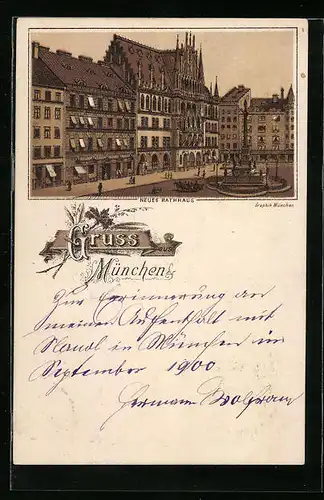 NEUES RATHHAUS
Graphik München
Gruss
aus
München
Zur Erinnerung an
meinen Aufenthalt mit
in München im
September 1900
Hermann